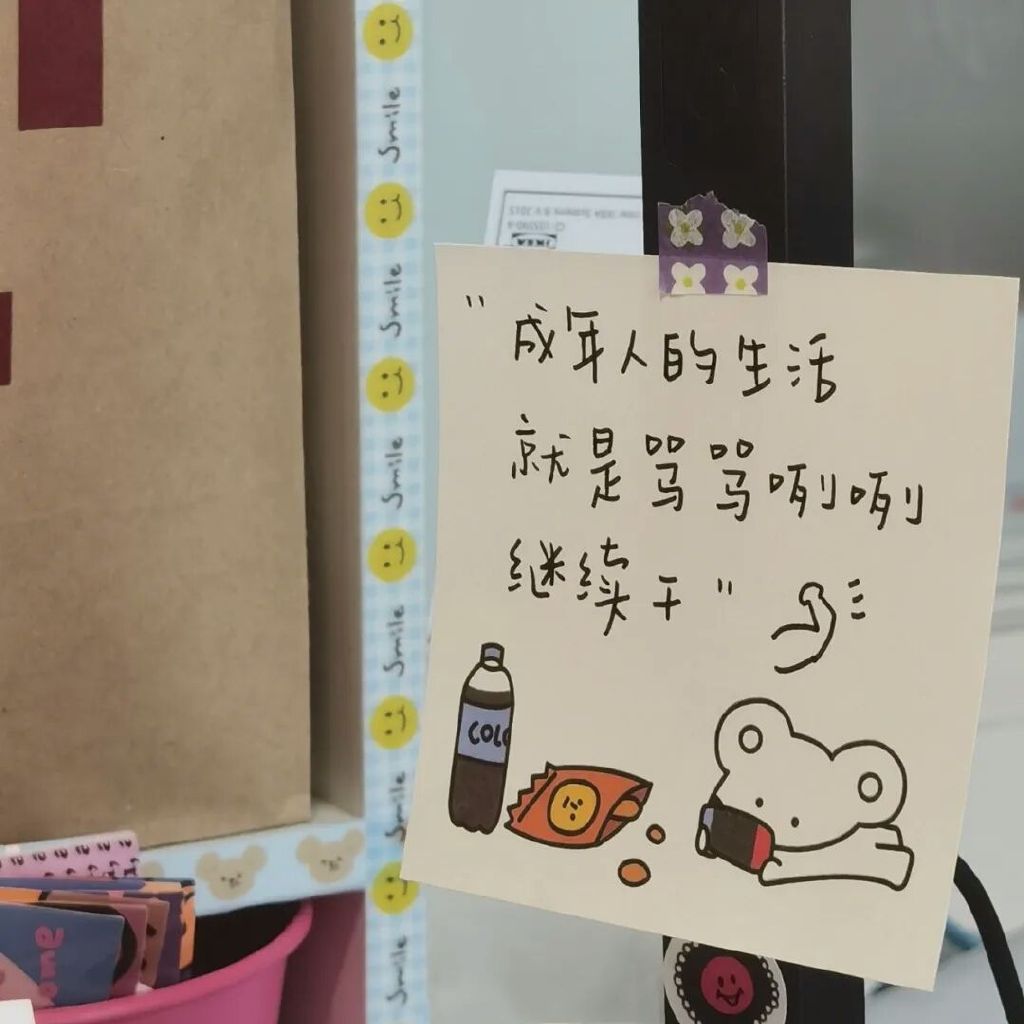 "成年人的生活
就是骂骂咧咧
继续干"
COLC
Smile
Smile
Smile
Smile
Smile
Smile